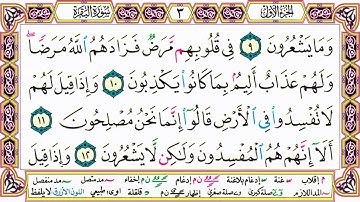 الجزء الاول ٣ سورة البقرة
وَمَا يَشْعُرُونَ ۝٩ فِي قُلُوبِهِم مَّرَضٌ فَزَادَهُمُ اللَّهُ مَرَضًا
وَلَهُمْ عَذَابٌ أَلِيمٌ بِمَا كَانُوا يَكْذِبُونَ ۝١٠ وَإِذَا قِيلَ لَهُمْ
لَا تُفْسِدُوا فِي الْأَرْضِ قَالُوا إِنَّمَا نَحْنُ مُصْلِحُونَ ۝١١
أَلَا إِنَّهُمْ هُمُ الْمُفْسِدُونَ وَلَٰكِن لَّا يَشْعُرُونَ ۝١٢ وَإِذَا قِيلَ